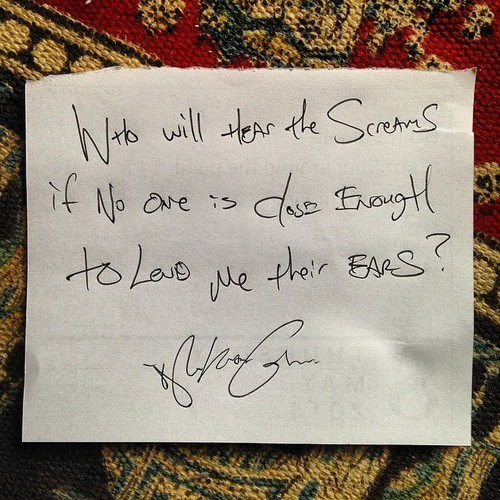 Who will HEAR the Screams
if No one is close Enough
to Lend me their EARS?